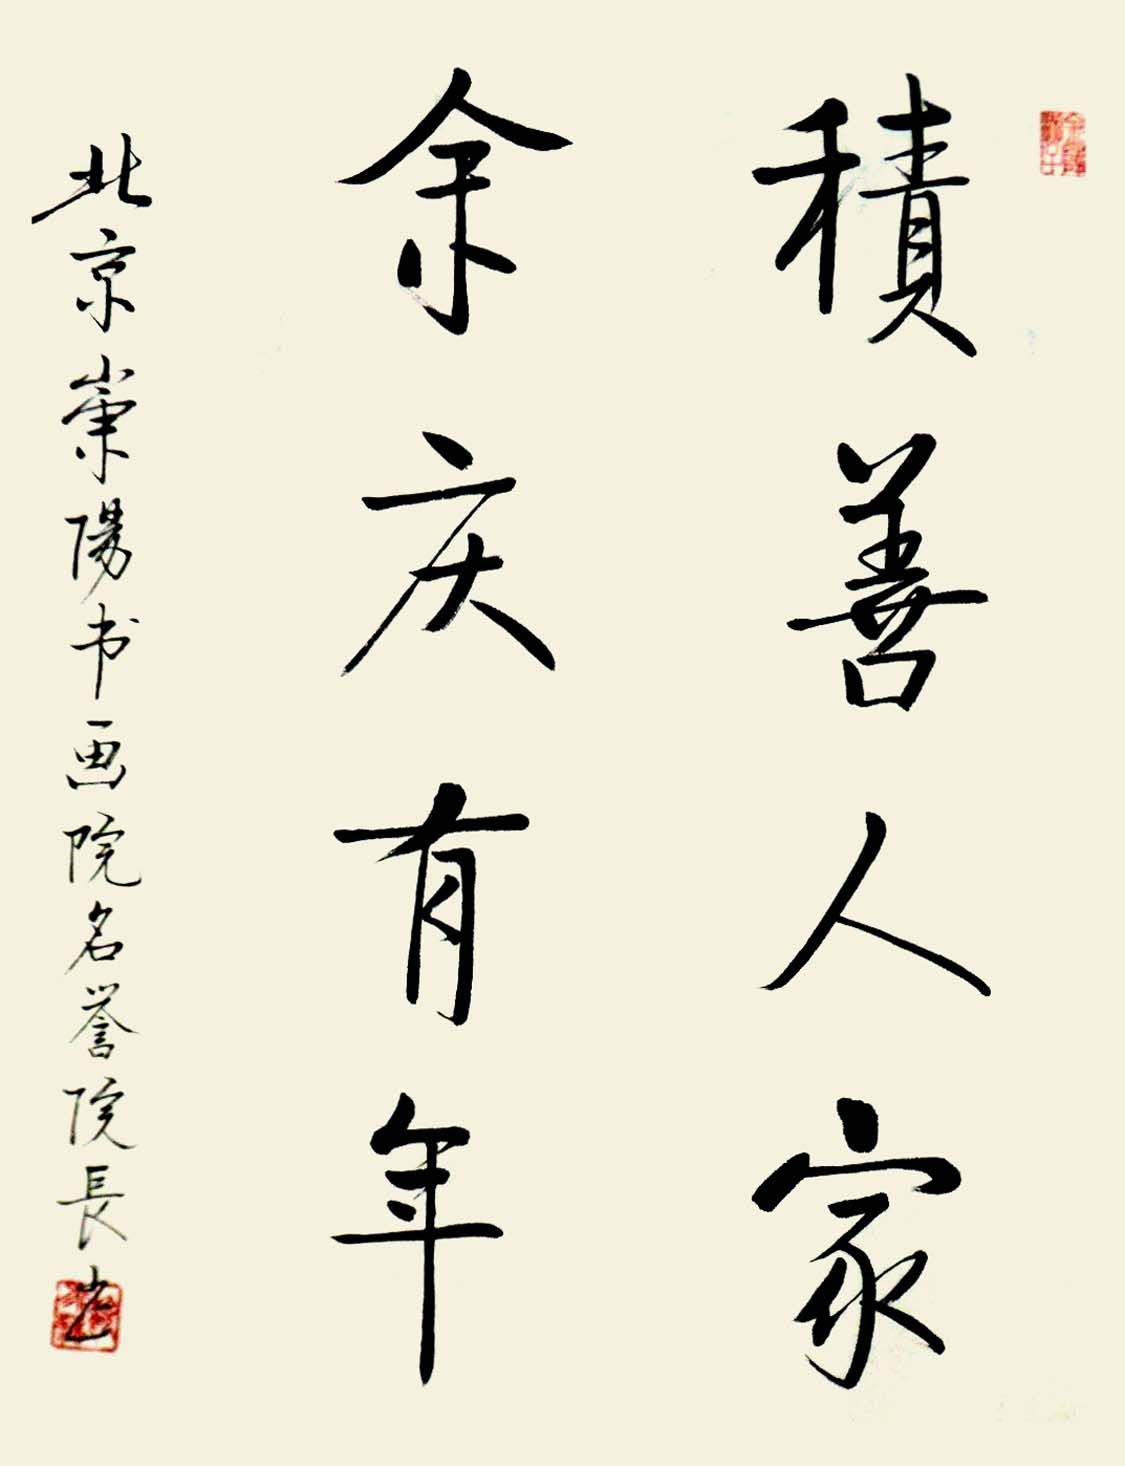 積善人家
余庆有年
北京崇陽书画院名誉院長